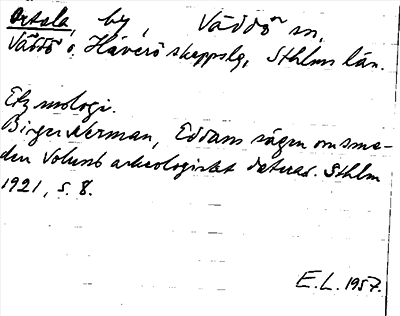 Ortala, by, Väddö sn,
Väddö o. Häverö skeppslg, Sthlms län.
Etymologi.
Birger Nerman, Eddans sägen om sme-
den Volund arkeologiskt daterad. Sthlm
1921, s. 8.
E.L. 1957.